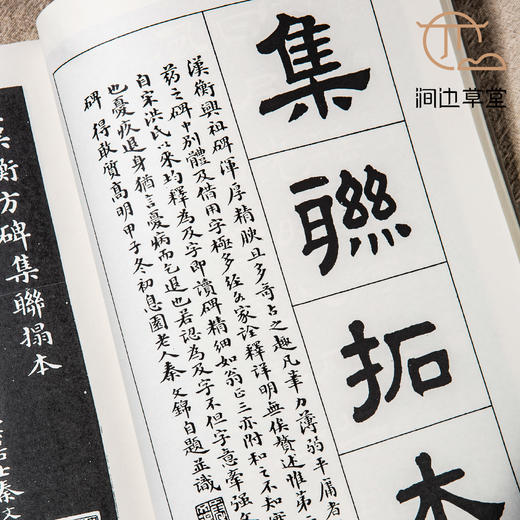 涧边草堂
集聯拓本
漢衡興祖碑渾厚精腴且多奇古之趣凡筆力薄弱平庸者
药之碑中别體及借用字極多经各家诠釋詳明無俟贅述惟第
自宋洪氏以来均釋為及字即讀碑精细如翁正三亦附和之不知
也憂疚退身猶言憂病而乞退也若認為及字不但字意牵强
碑 得敢質高明甲子冬初息園老人秦文錦自題並識
衡方碑集聯搨本
士秦文